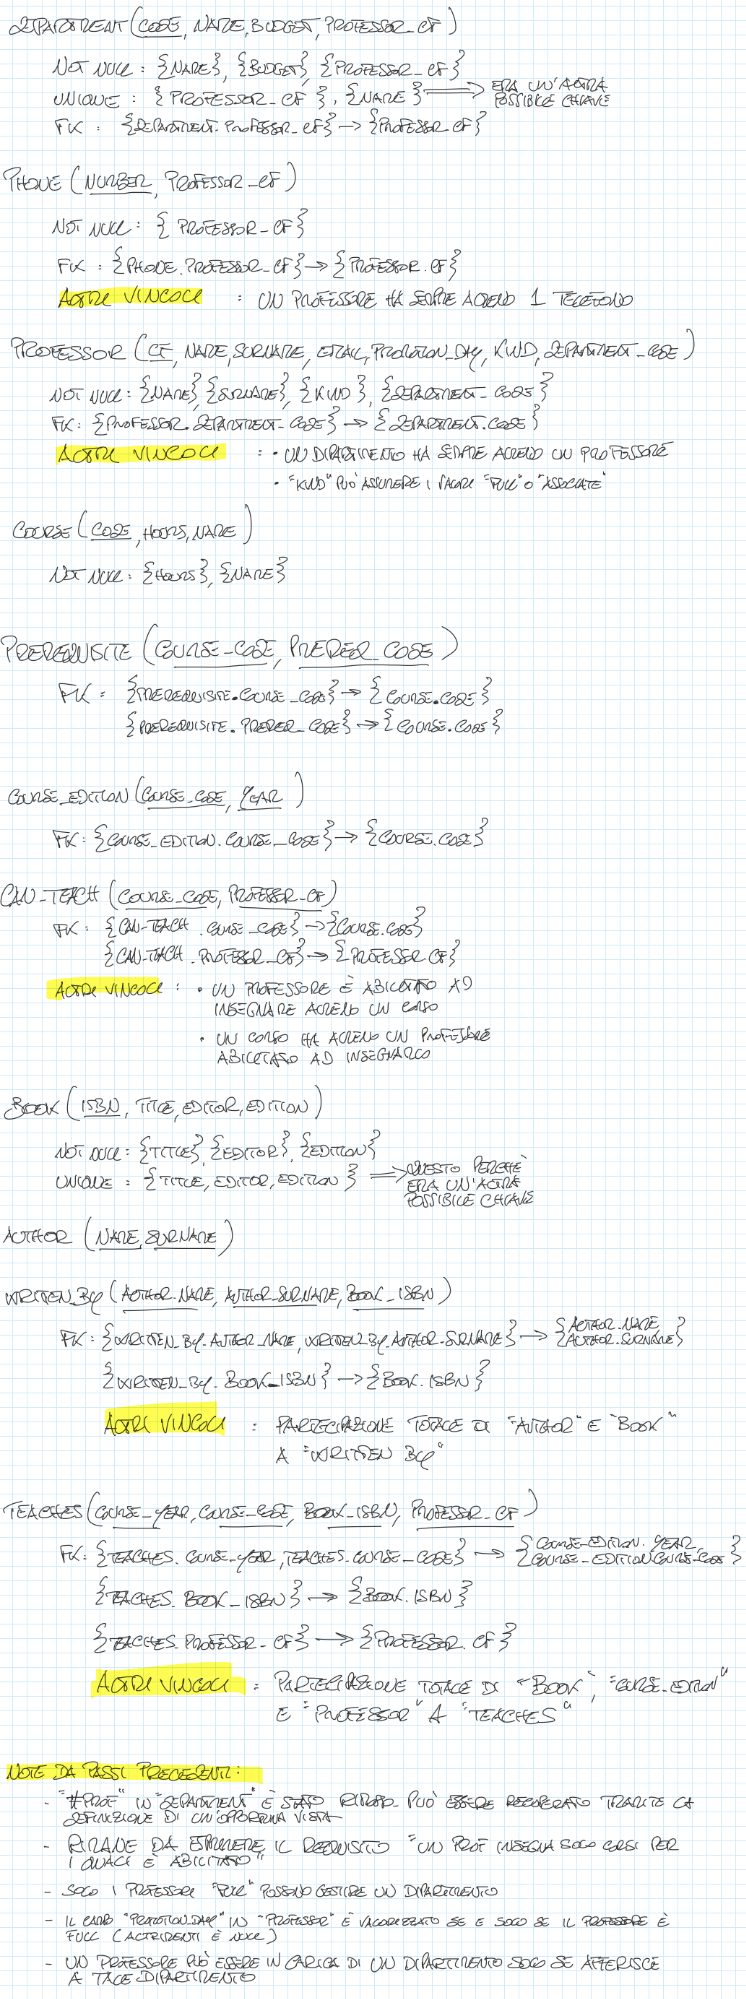 DEPARTMENT (CODE, NAME, BUDGET, PROFESSOR_CF)
NOT NULL : {NAME}, {BUDGET}, {PROFESSOR_CF}
UNIQUE : {PROFESSOR_CF}, {NAME} ⟹ ERA UN'ALTRA
POSSIBILE CHIAVE
FK : {DEPARTMENT.PROFESSOR_CF} → {PROFESSOR.CF}
PHONE (NUMBER, PROFESSOR_CF)
NOT NULL : {PROFESSOR_CF}
FK : {PHONE.PROFESSOR_CF} → {PROFESSOR.CF}
ALTRI VINCOLI : UN PROFESSORE HA SEMPRE ALMENO 1 TELEFONO
PROFESSOR (CF, NAME, SURNAME, EMAIL, PROMOTION_DAY, KIND, DEPARTMENT_CODE)
NOT NULL : {NAME}, {SURNAME}, {KIND}, {DEPARTMENT_CODE}
FK : {PROFESSOR.DEPARTMENT_CODE} → {DEPARTMENT.CODE}
ALTRI VINCOLI : • UN DIPARTIMENTO HA SEMPRE ALMENO UN PROFESSORE
• "KIND" PUÒ ASSUMERE I VALORI "FULL" O "ASSOCIATE"
COURSE (CODE, HOURS, NAME)
NOT NULL : {HOURS}, {NAME}
PREREQUISITE (COURSE_CODE, PREREQ_CODE)
FK : {PREREQUISITE.COURSE_CODE} → {COURSE.CODE}
{PREREQUISITE.PREREQ_CODE} → {COURSE.CODE}
COURSE_EDITION (COURSE_CODE, YEAR)
FK : {COURSE_EDITION.COURSE_CODE} → {COURSE.CODE}
CAN_TEACH (COURSE_CODE, PROFESSOR_CF)
FK : {CAN_TEACH.COURSE_CODE} → {COURSE.CODE}
{CAN_TEACH.PROFESSOR_CF} → {PROFESSOR.CF}
ALTRI VINCOLI : • UN PROFESSORE È ABILITATO AD
INSEGNARE ALMENO UN CORSO
• UN CORSO HA ALMENO UN PROFESSORE
ABILITATO AD INSEGNARLO
BOOK (ISBN, TITLE, EDITOR, EDITION)
NOT NULL : {TITLE}, {EDITOR}, {EDITION}
UNIQUE : {TITLE, EDITOR, EDITION} ⟹ QUESTO PERCHÈ
ERA UN'ALTRA
POSSIBILE CHIAVE
AUTHOR (NAME, SURNAME)
WRITTEN_BY (AUTHOR_NAME, AUTHOR_SURNAME, BOOK_ISBN)
FK : {WRITTEN_BY.AUTHOR_NAME, WRITTEN_BY.AUTHOR_SURNAME} → {AUTHOR.NAME, AUTHOR.SURNAME}
{WRITTEN_BY.BOOK_ISBN} → {BOOK.ISBN}
ALTRI VINCOLI : PARTECIPAZIONE TOTALE DI "AUTHOR" E "BOOK"
A "WRITTEN BY"
TEACHES (COURSE_YEAR, COURSE_CODE, BOOK_ISBN, PROFESSOR_CF)
FK : {TEACHES.COURSE_YEAR, TEACHES.COURSE_CODE} → {COURSE_EDITION.YEAR, COURSE_EDITION.COURSE_CODE}
{TEACHES.BOOK_ISBN} → {BOOK.ISBN}
{TEACHES.PROFESSOR_CF} → {PROFESSOR.CF}
ALTRI VINCOLI : PARTECIPAZIONE TOTALE DI "BOOK", "COURSE_EDITION"
E "PROFESSOR" A "TEACHES"
NOTE DA PASSI PRECEDENTI :
- "#PROF" IN "DEPARTMENT" È STATO RIMOSSO. PUÒ ESSERE RECUPERATO TRAMITE LA
DEFINIZIONE DI UN'OPPORTUNA VISTA
- RIMANE DA ESPRIMERE IL REQUISITO "UN PROF INSEGNA SOLO CORSI PER
I QUALI È ABILITATO"
- SOLO I PROFESSORI "FULL" POSSONO GESTIRE UN DIPARTIMENTO
- IL CAMPO "PROMOTION_DAY" IN "PROFESSOR" È VALORIZZATO SE E SOLO SE IL PROFESSORE È
FULL (ALTRIMENTI È NULL)
- UN PROFESSORE PUÒ ESSERE IN CARICA DI UN DIPARTIMENTO SOLO SE AFFERISCE
A TALE DIPARTIMENTO